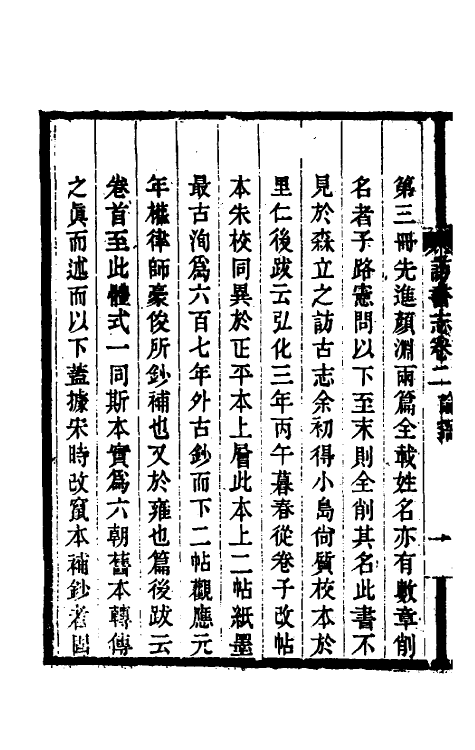 第三冊先進顏淵兩篇全載姓名亦有數章削
名者子路憲問以下至末則全削其名此書不
見於森立之訪古志余初得小島尙質校本於
里仁後跋云弘化三年丙午暮春從卷子改帖
本朱校同異於正平本上層此本上二帖紙墨
最古洵爲六百七年外古鈔而下二帖觀應元
年權律師豪俊所鈔補也又於雍也篇後跋云
卷首至此體式一同斯本實爲六朝舊本轉傳
之眞而述而以下蓋據宋時改竄本補鈔者固
訪書志卷二 一